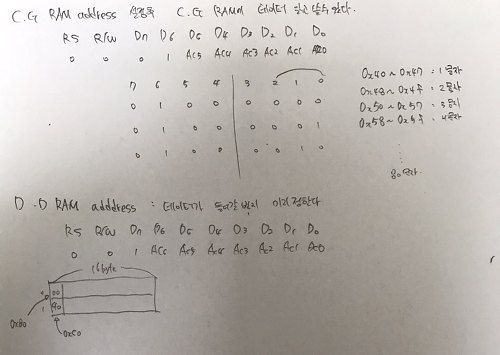 C.G RAM address 설정후 C.G RAM에 데이터 읽고 쓸수 있다.
RS R/W D7 D6 D5 D4 D3 D2 D1 D0
0 0 0 1 AC5 AC4 AC3 AC2 AC1 AC0
7 6 5 4 3 2 1 0
0x40 ~ 0x47 : 1문자
0 1 0 0 0 0 0 0
0x48 ~ 0x4F : 2문자
0x50 ~ 0x57 : 3문자
0 1 0 0 0 0 0 1
0x58 ~ 0x5F : 4문자
0 1 0 0 0 0 1 0
D.D RAM adddress : 데이터가 들어갈 번지 미리 정한다
RS R/W D7 D6 D5 D4 D3 D2 D1 D0
0 0 1 AC6 AC5 AC4 AC3 AC2 AC1 AC0
16byte
0 00
1 40
0x80
0xC0